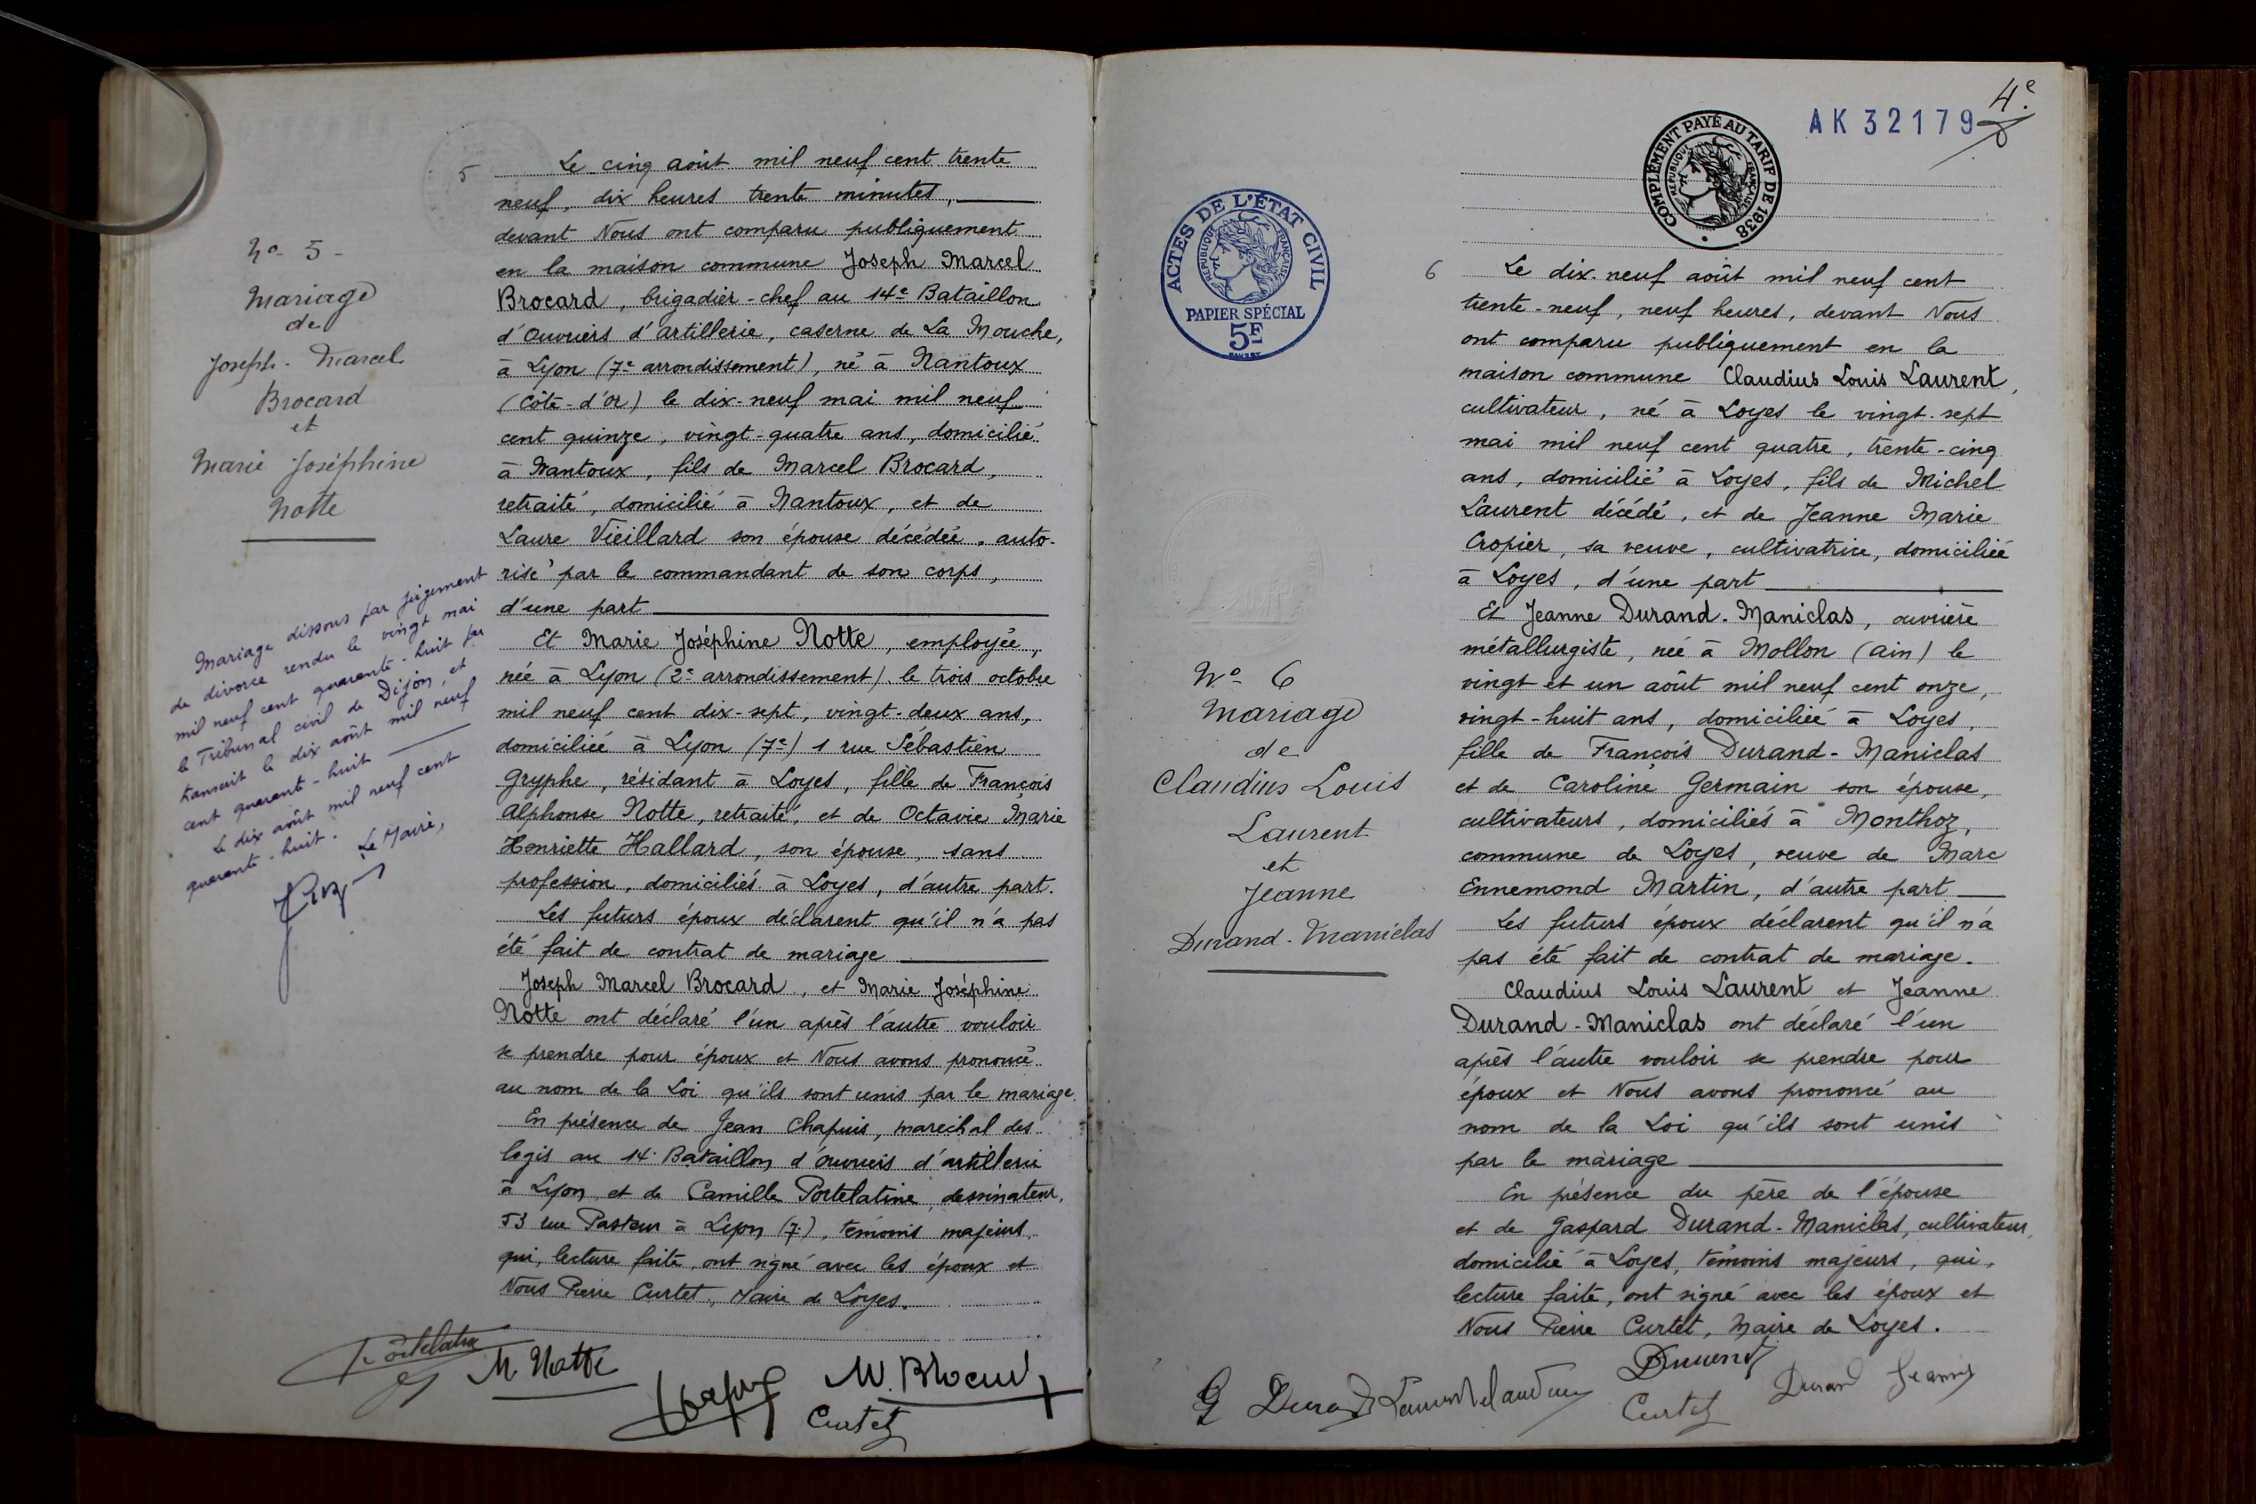 5
Le cinq août mil neuf cent trente
neuf, dix heures trente minutes,
devant Nous ont comparu publiquement
en la maison commune Joseph Marcel
Brocard, brigadier-chef au 14e Bataillon
d'Ouvriers d'artillerie, caserne de La Mouche,
à Lyon (7e arrondissement), né à Nantoux
(Côte-d'Or) le dix-neuf mai mil neuf
cent quinze, vingt-quatre ans, domicilié
à Nantoux, fils de Marcel Brocard,
retraité, domicilié à Nantoux, et de
Laure Vieillard son épouse décédée, auto-
risé par le commandant de son corps,
d'une part
Et Marie Joséphine Notte, employée,
née à Lyon (2e arrondissement) le trois octobre
mil neuf cent dix-sept, vingt-deux ans,
domiciliée à Lyon (7e) 1 rue Sébastien
Gryphe, résidant à Loyes, fille de François
Alphonse Notte, retraité, et de Octavie Marie
Henriette Hallard, son épouse, sans
profession, domiciliés à Loyes, d'autre part.
Les futurs époux déclarent qu'il n'a pas
été fait de contrat de mariage
Joseph Marcel Brocard, et Marie Joséphine
Notte ont déclaré l'un après l'autre vouloir
se prendre pour époux et Nous avons prononcé
au nom de la Loi qu'ils sont unis par le mariage.
En présence de Jean Chapuis, maréchal des
logis au 14e Bataillon d'ouvriers d'artillerie
à Lyon, et de Camille Portelatine, dessinateur,
53 rue Pasteur à Lyon (7e), témoins majeurs,
qui, lecture faite, ont signé avec les époux et
Nous Pierre Curtet, Maire de Loyes.
M. Notte
M. Brocard
Curtet
No 5 -
Mariage
de
Joseph-Marcel
Brocard
et
Marie Joséphine
Notte
Mariage dissous par jugement
de divorce rendu le vingt mai
mil neuf cent quarante-huit par
le Tribunal civil de Dijon, et
transcrit le dix août mil neuf
cent quarante-huit
Le dix août mil neuf cent
quarante-huit.
Le Maire,
4e
AK 32179
COMPLÉMENT PAYÉ AU TARIF DE 1938
RÉPUBLIQUE FRANÇAISE
ACTES DE L'ÉTAT CIVIL
RÉPUBLIQUE FRANÇAISE
PAPIER SPÉCIAL
5F
6
Le dix-neuf août mil neuf cent
trente-neuf, neuf heures, devant Nous
ont comparu publiquement en la
maison commune Claudius Louis Laurent,
cultivateur, né à Loyes le vingt-sept
mai mil neuf cent quatre, trente-cinq
ans, domicilié à Loyes, fils de Michel
Laurent décédé, et de Jeanne Marie
Cropier, sa veuve, cultivatrice, domiciliée
à Loyes, d'une part
Et Jeanne Durand-Maniclas, ouvrière
métallurgiste, née à Mollon (Ain) le
vingt et un août mil neuf cent onze,
vingt-huit ans, domiciliée à Loyes,
fille de François Durand-Maniclas
et de Caroline Germain son épouse,
cultivateurs, domiciliés à Monthoz,
commune de Loyes, veuve de Marc
Ennemond Martin, d'autre part
Les futurs époux déclarent qu'il n'a
pas été fait de contrat de mariage.
Claudius Louis Laurent et Jeanne
Durand-Maniclas ont déclaré l'un
après l'autre vouloir se prendre pour
époux et Nous avons prononcé au
nom de la Loi qu'ils sont unis
par le mariage
En présence du père de l'épouse
et de Gaspard Durand-Maniclas, cultivateur,
domicilié à Loyes, témoins majeurs, qui,
lecture faite, ont signé avec les époux et
Nous Pierre Curtet, Maire de Loyes.
G Durand
Laurent Claudius
Durand
Curtet
Durand Jeanne
No 6
Mariage
de
Claudius Louis
Laurent
et
Jeanne
Durand-Maniclas